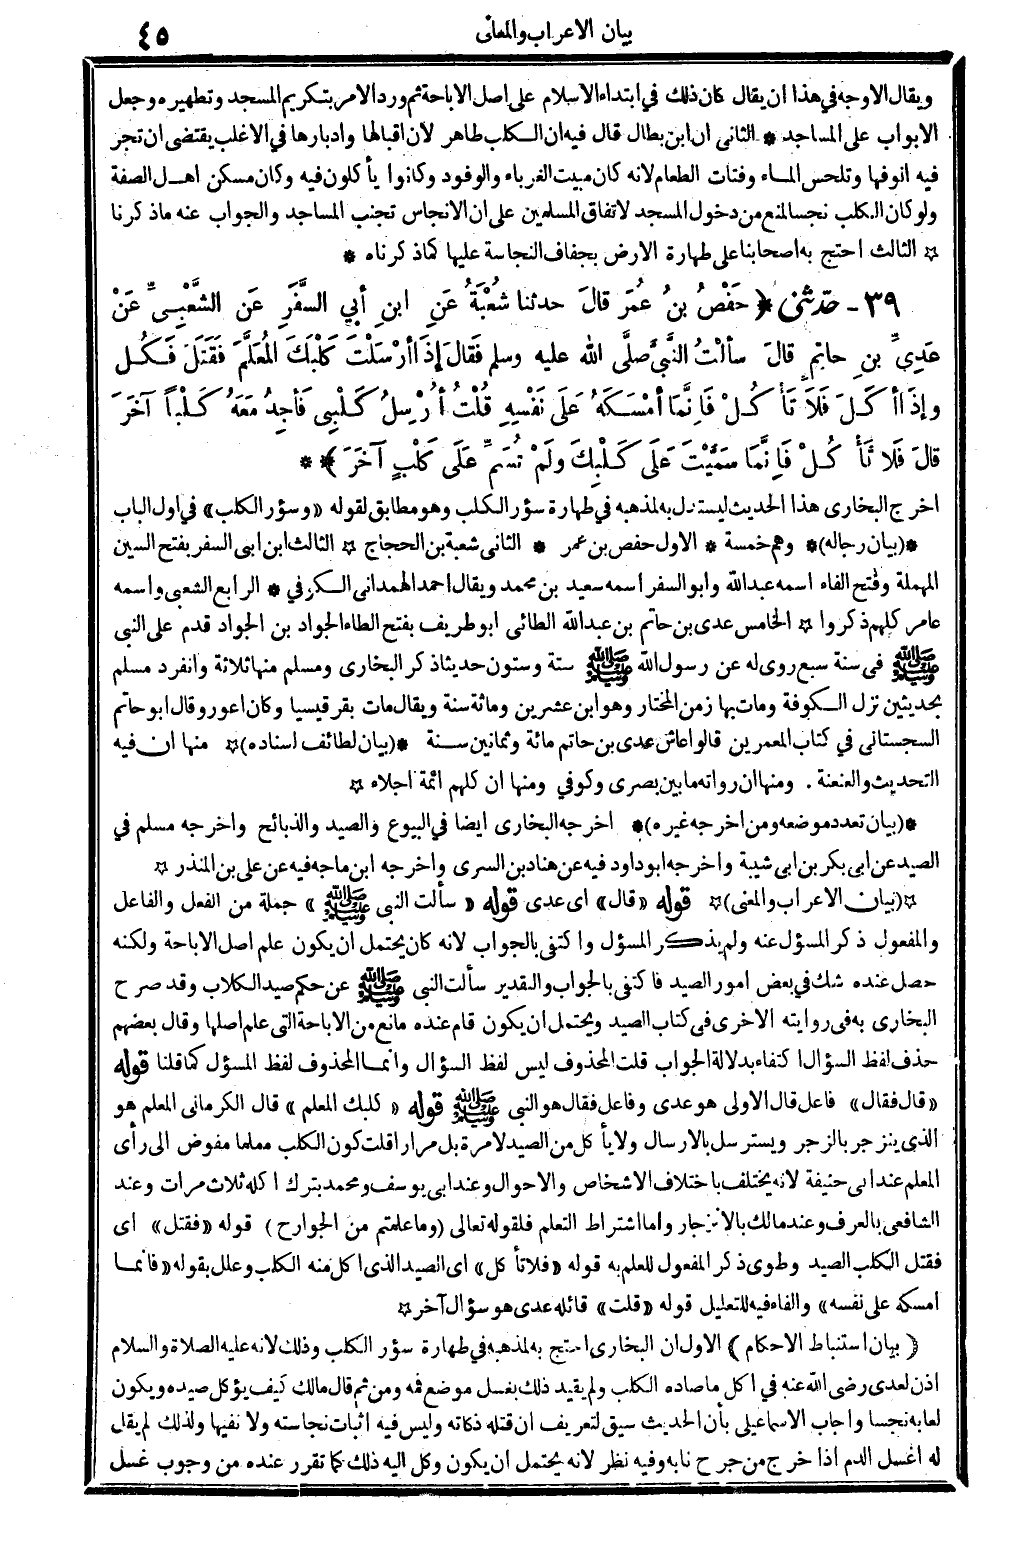 بيان الاعراب والمعانى ٤٥
ويقال الاوجه في هذا ان يقال كان ذلك في ابتداء الاسلام على اصل الاباحة ثم ورد الامر بتكريم المسجد وتطهيره وجعل
الابواب على المساجد * الثانى ان ابن بطال قال فيه ان الكلب طاهر لان اقبالها وادبارها في الاغلب يقتضى ان تجر
فيه انوفها وتلحس الماء وفتات الطعام لانه كان مبيت الغرباء والوفود وكانوا يأكلون فيه وكان مسكن اهل الصفة
ولو كان الكلب نجسا لمنع من دخول المسجد لاتفاق المسلمين على ان الانجاس تجنب المساجد والجواب عنه ماذكرنا
☆ الثالث احتج به اصحابنا على طهارة الارض بجفاف النجاسة عليها كما ذكرناه *
٣٩ - حَدَّثَنِى ﴿ حَفْصُ بنُ عُمَرَ قالَ حدثنا شُعْبَةُ عَنِ ابنِ أبي السَّفَرِ عَنِ الشَّعْبِىِّ عَنْ
عَدِيِّ بنِ حاتِمٍ قالَ سألْتُ النَّبيَّ صلَّى الله عليه وسلم فَقَالَ إذَا أرْسَلْتَ كَلْبَكَ المُعَلَّمَ فَقَتَلَ فَكُلْ
وإذَا أكَلَ فَلَا تَأْكُلْ فَإنَّمَا أمْسَكَهُ عَلَى نَفْسِهِ قُلْتُ أُرْسِلُ كَلْبِى فَأجِدُ مَعَهُ كَلْباً آخَرَ
قالَ فَلا تَأْكُلْ فَإنَّمَا سَمَّيْتَ عَلَى كَلْبِكَ ولَمْ تُسَمِّ عَلَى كَلْبٍ آخَرَ ﴾ * *
اخرج البخارى هذا الحديث ليستدل به لمذهبه في طهارة سؤر الكلب وهو مطابق لقوله «وسؤر الكلب» في اول الباب
*(بيان رجاله)* وهم خمسة * الاول حفص بن عمر * الثانى شعبة بن الحجاج ☆ الثالث ابن ابى السفر بفتح السين
المهملة وفتح الفاء اسمه عبدالله وابو السفر اسمه سعيد بن محمد ويقال احمد الهمدانى الكوفي * الرابع الشعبى واسمه
عامر كلهم ذكروا ☆ الخامس عدى بن حاتم بن عبدالله الطائى ابو طريف بفتح الطاء الجواد بن الجواد قدم على النبى
ﷺ فى سنة سبع روى له عن رسول الله ﷺ ستة وستون حديثا ذكر البخارى ومسلم منها ثلاثة وانفرد مسلم
بحديثين نزل الكوفة ومات بها زمن المختار وهو ابن عشرين ومائة سنة ويقال مات بقرقيسيا وكان اعور وقال ابو حاتم
السجستانى في كتاب المعمرين قالوا عاش عدى بن حاتم مائة وثمانين سنة *(بيان لطائف اسناده)☆ منها ان فيه
التحديث والعنعنة . ومنها ان رواته ما بين بصرى وكوفي ومنها ان كلهم ائمة اجلاء ☆
*(بيان تعدد موضعه ومن اخرجه غيره)* اخرجه البخارى ايضا في البيوع والصيد والذبائح واخرجه مسلم في
الصيد عن ابى بكر بن ابى شيبة واخرجه ابو داود فيه عن هناد بن السرى واخرجه ابن ماجه فيه عن على بن المنذر ☆
☆(بيان الاعراب والمعنى)☆ قوله «قال» اى عدى قوله « سألت النبى ﷺ » جملة من الفعل والفاعل
والمفعول ذكر المسؤل عنه ولم يذكر المسؤل واكتفى بالجواب لانه كان يحتمل ان يكون علم اصل الاباحة ولكنه
حصل عنده شك في بعض امور الصيد فاكتفى بالجواب والتقدير سألت النبى ﷺ عن حكم صيد الكلاب وقد صرح
البخارى به فى روايته الاخرى فى كتاب الصيد ويحتمل ان يكون قام عنده مانع من الاباحة التى علم اصلها وقال بعضهم
حذف لفظ السؤال اكتفاء بدلالة الجواب قلت المحذوف ليس لفظ السؤال وانما المحذوف لفظ المسؤل كما قلنا قوله
«قال فقال» فاعل قال الاولى هو عدى وفاعل فقال هو النبى ﷺ قوله « كلبك المعلم » قال الكرمانى المعلم هو
الذى ينزجر بالزجر ويسترسل بالارسال ولا يأكل من الصيد لا مرة بل مرارا قلت كون الكلب معلما مفوض الى رأى
المعلم عند ابى حنيفة لانه يختلف باختلاف الاشخاص والاحوال وعند ابى يوسف ومحمد بترك اكله ثلاث مرات وعند
الشافعى بالعرف وعند مالك بالانزجار واما اشتراط التعلم فلقوله تعالى (وما علمتم من الجوارح) قوله «فقتل» اى
فقتل الكلب الصيد وطوى ذكر المفعول للعلم به قوله «فلا تأكل» اى الصيد الذى اكل منه الكلب وعلل بقوله «فانما
امسكه على نفسه» والفاء فيه للتعليل قوله «قلت» قائله عدى هو سؤال آخر ☆
( بيان استنباط الاحكام ) الاول ان البخارى احتج به لمذهبه في طهارة سؤر الكلب وذلك لانه عليه الصلاة والسلام
اذن لعدى رضى الله عنه في اكل ما صاده الكلب ولم يقيد ذلك بغسل موضع فمه ومن ثم قال مالك كيف يؤكل صيده ويكون
لعابه نجسا واجاب الاسماعيلى بأن الحديث سيق لتعريف ان قتله ذكاته وليس فيه اثبات نجاسته ولا نفيها ولذلك لم يقل
له اغسل الدم اذا خرج من جرح نابه وفيه نظر لانه يحتمل ان يكون وكل اليه ذلك كما تقرر عنده من وجوب غسل